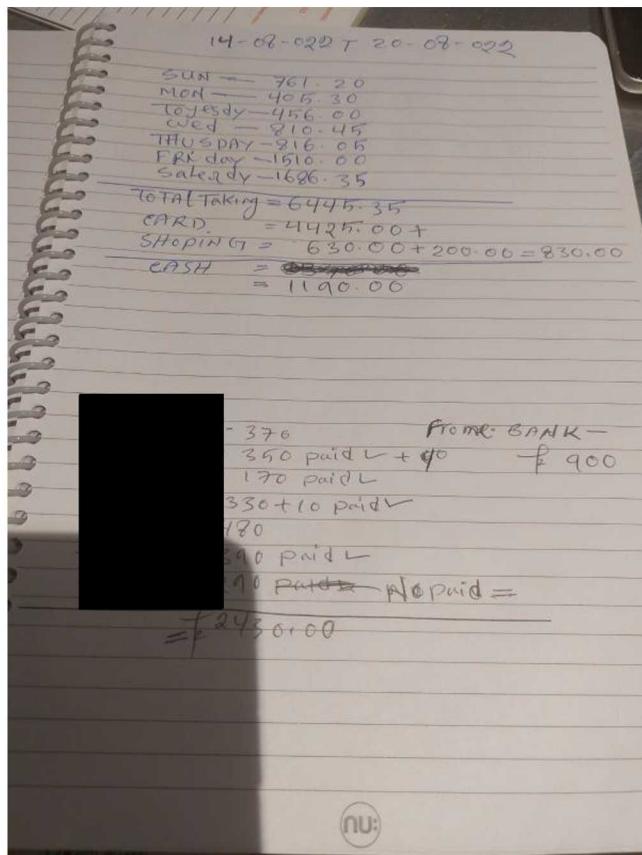 14-08-022 T 20-08-022
SUN — 761.20
MON — 405.30
Toyesdy — 456.00
Wed — 810.45
THUSDAY — 816.05
FRKday — 1510.00
Saterdy — 1686.35
TOTAL Taking = 6445.35
CARD. = 4425.00+
SHOPING = 630.00+200.00=830.00
CASH =
= 1190.00
- 370 From: BANK —
350 paid + 40 £ 900
170 paid
330+10 paid
480
390 paid
90 paid No paid =
= £2430.00
nu: